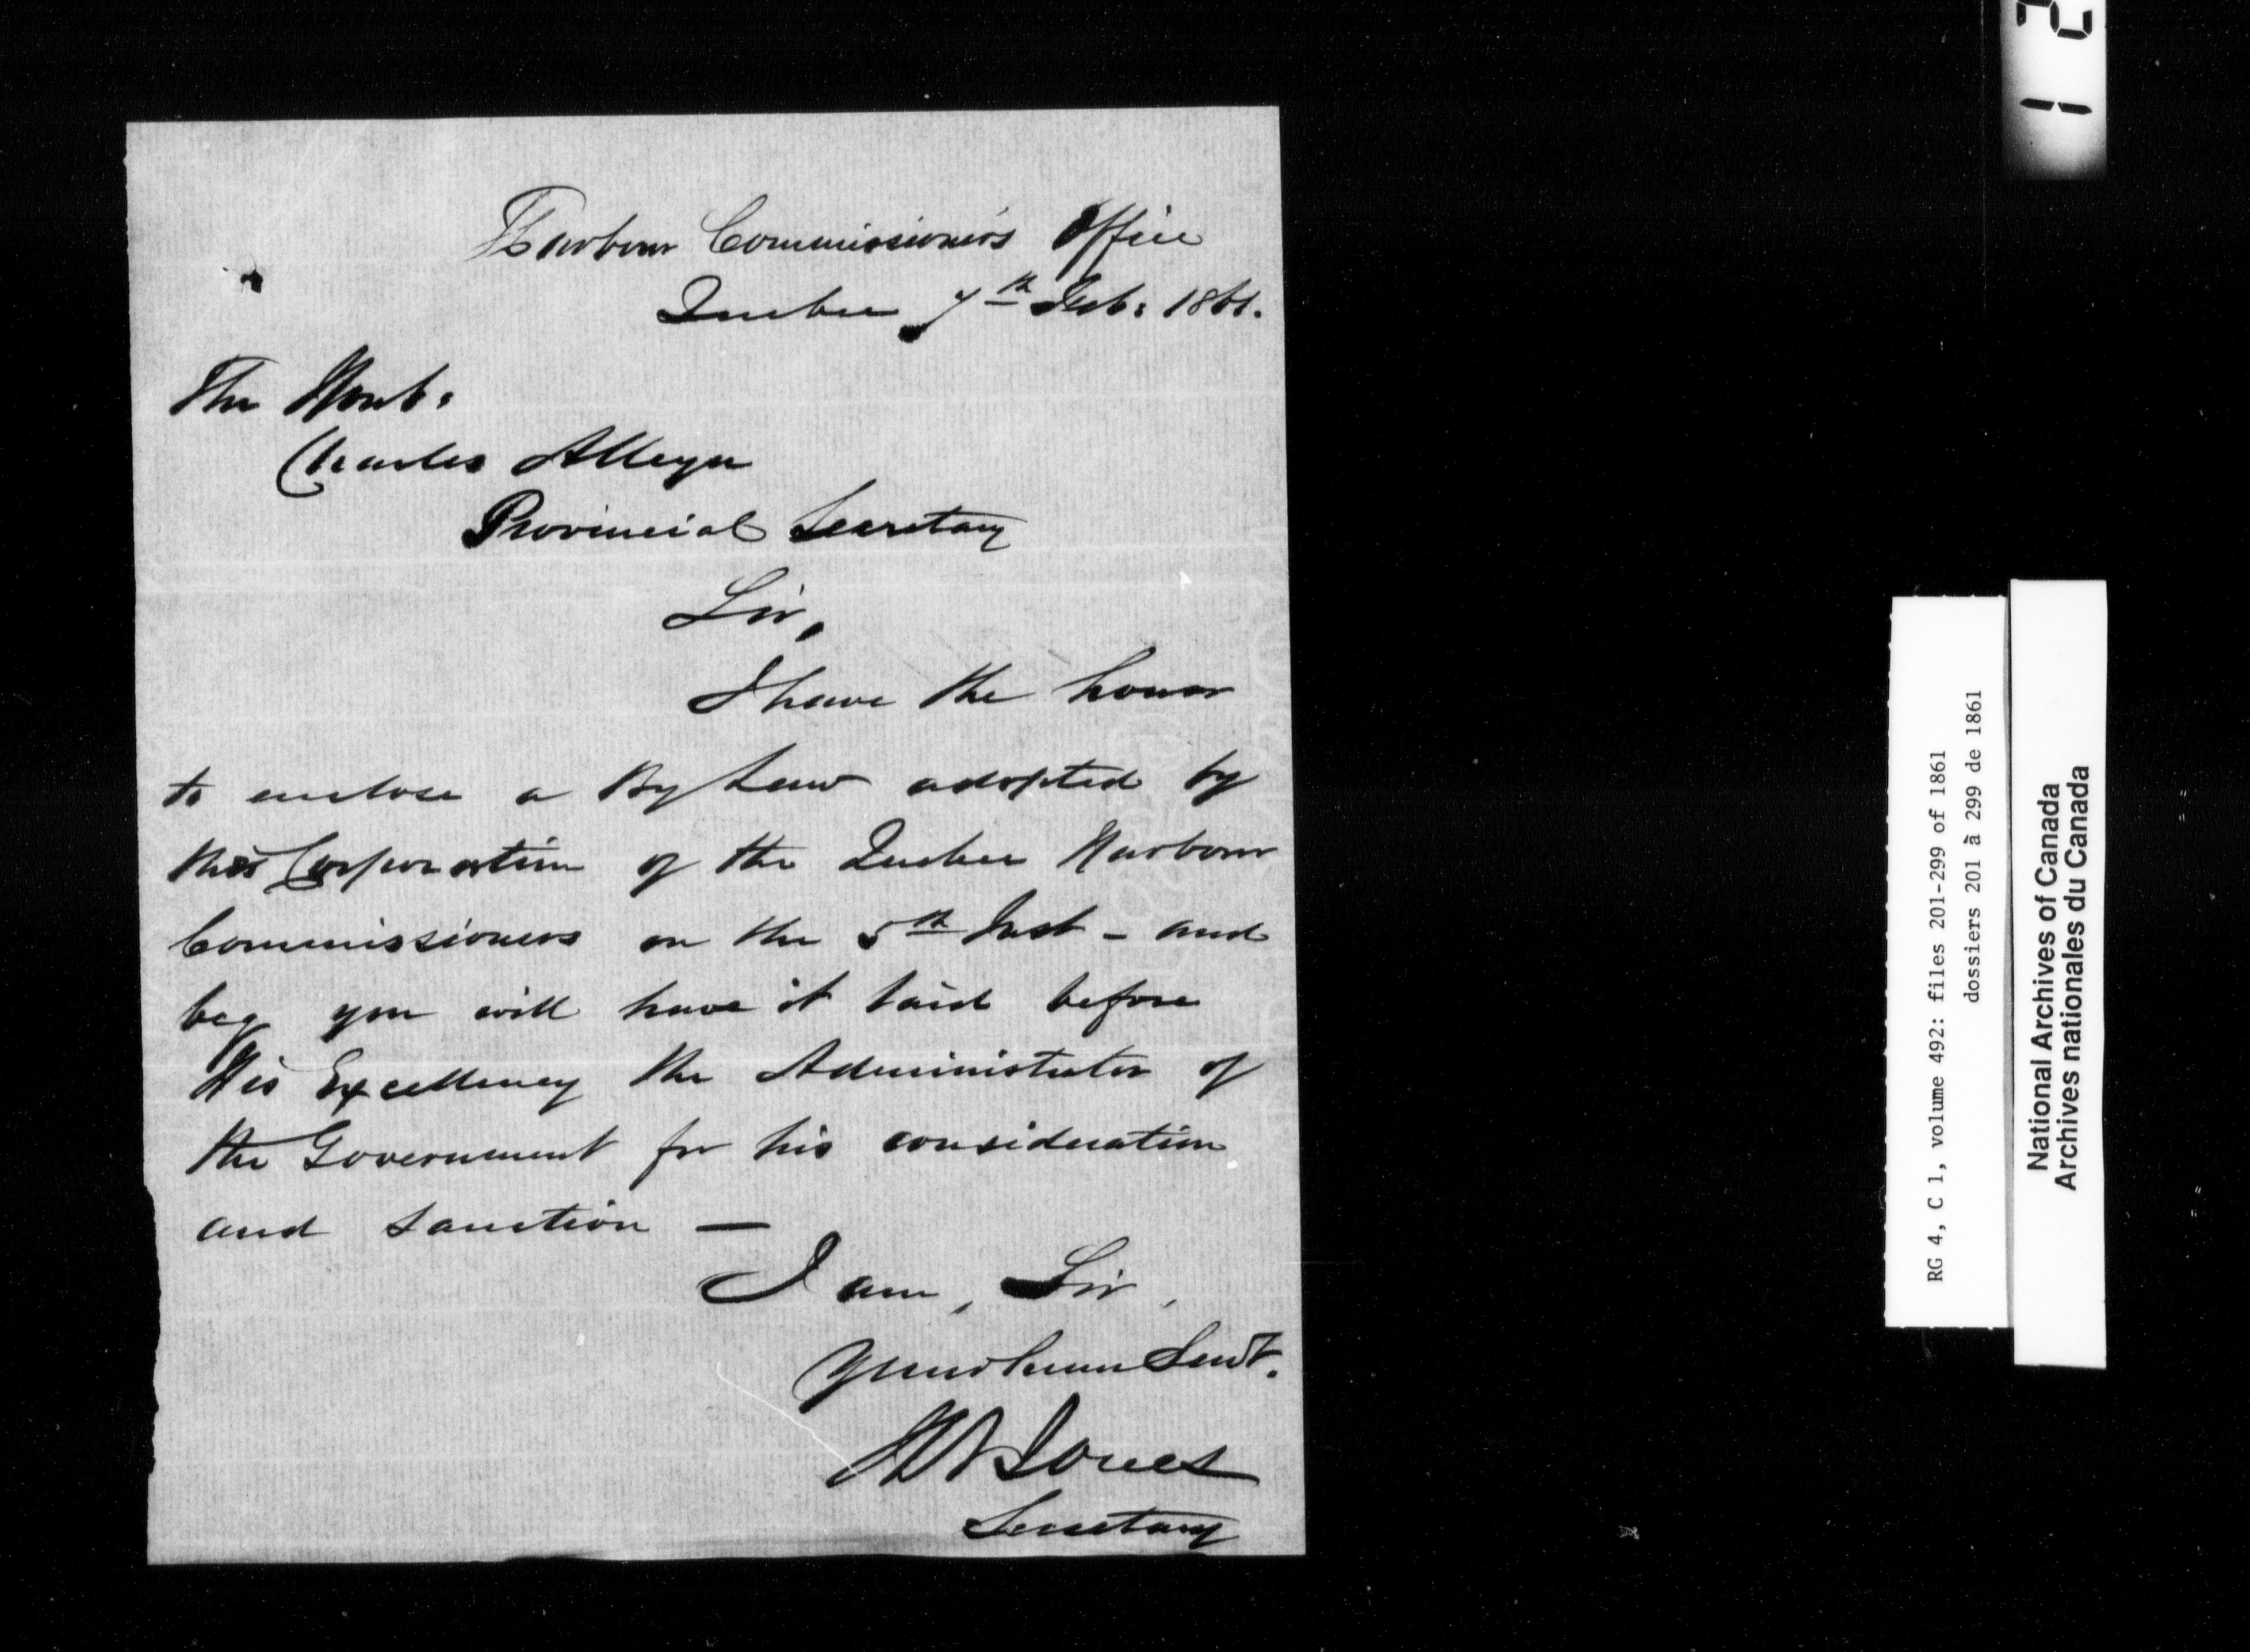 Harbour Commissioner's Office
Quebec 7th Feb: 1861.
The Honb:
Charles Alleyn
Provincial Secretary
Sir,
I have the honor
to enclose a By Law adopted by
the Corporation of the Quebec Harbour
Commissioners on the 5th Inst - and
beg you will have it laid before
His Excellency the Administrator of
the Government for his consideration
and sanction —
I am, Sir,
Your Servt.
Jones
Secretary
RG 4, C 1, volume 492: files 201-299 of 1861
dossiers 201 à 299 de 1861
National Archives of Canada
Archives nationales du Canada